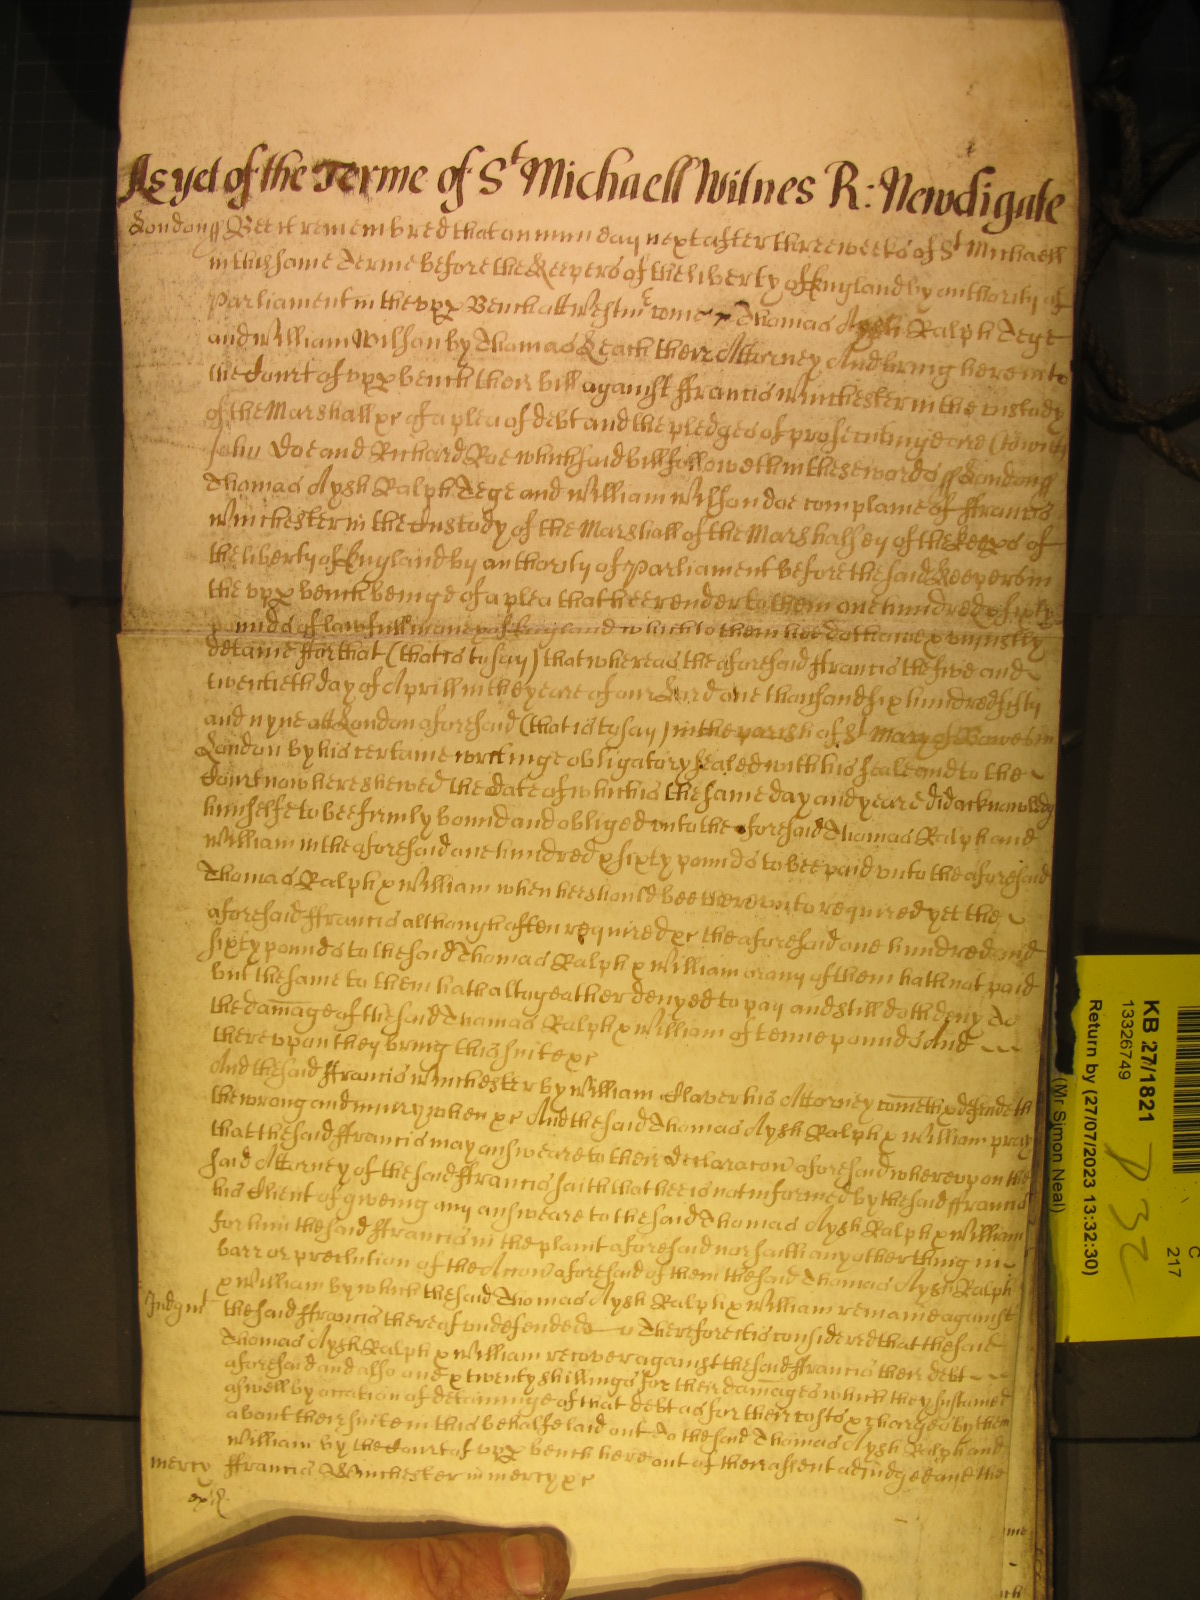 As yet of the Terme of St Michaell Witnes R: Newdigate
London ss Bee it remembred that on munday next after three weeks of St Michaell
in this same Terme before the Keepers of the liberty of England by authority of
Parliament in the vpp Bench att Westmr come Thomas Aysh Ralph Tege
and William Wilson by Thomas Leach their Attorney And bring here into
the Court of vpp bench their bill against ffrancis Winchester in the custody
of the Marshall &c of a plea of debt and the pledges of prosecuting are (to witt)
John Doe and Richard Roe which said bill followeth in these words ss London ss
Thomas Aysh Ralph Tege and William Wilson doe complaine of ffrancis
Winchester in the Custody of the Marshall of the Marshalsey of the Keeps of
the liberty of England by authority of Parliament before the said Keepers in
the vpp bench beinge of a plea that hee render to them one hundred & sixty
pounds of lawfull money of England which to them hee doth owe & uniustly
detaine ffor that (that is to say) that whereas the aforesaid ffrancis the five and
twentieth day of Aprill in the yeare of our Lord one thousand six hundred fifty
and nyne att London aforesaid (that is to say) in the parish of St Mary of Bowes in
London by his certaine writinge obligatory sealed with his seale and to the
Court now here shewed the date of which is the same day and yeare did acknowledg
himselfe to bee firmly bound and obliged unto the aforesaid Thomas Ralph and
William in the aforesaid one hundred & sixty pounds to bee paid vnto the aforesaid
Thomas Ralph & William when hee should bee therevnto required yet the
aforesaid ffrancis although often required &c the aforesaid one hundred and
sixty pounds to the said Thomas Ralph & William or any of them hath not paid
but the same to them hath altogeather denyed to pay and still doth deny To
the damage of the said Thomas Ralph & William of tenne pounds And
therevpon they bring this suite &c
And the said ffrancis Winchester by William Claver his Attorney cometh & defendeth
the wrong and iniury when &c And the said Thomas Aysh Ralph & William pray
that the said ffrancis may answeare to their declaracon aforesaid wherevpon the
said Attorney of the said ffrancis saith that hee is not informed by the said ffrancis
his Client of giveing any answeare to the said Thomas Aysh Ralph & William
for him the said ffrancis in the plaint aforesaid nor saith any other thing in
barr or preclution of the Accon aforesaid of them the said Thomas Aysh Ralph
& William by which the said Thomas Aysh Ralph & William remaine against
Judgmt the said ffrancis thereof vndefended Therefore it is considered that the said
Thomas Aysh Ralph & William recover against the said ffrancis their debt
aforesaid and also and twenty shillings for their damages which they sustained
aswell by occation of detaininge of that debt as for their costs & charges by them
about their suite in this behalfe laid out To the said Thomas Aysh Ralph and
William by the Court of vpp bench here out of their assent adjudged and the
mercy ffrancis Winchester in mercy &c
KB 27/1821
13326749
Return by (27/07/2023 13:32:30)
(Mr Simon Neal)
C
217